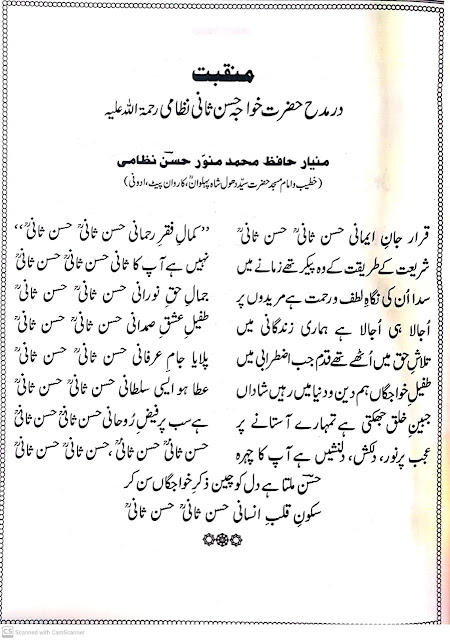 منقبت
در مدح حضرت خواجہ حسن ثانی نظامی رحمۃ اللہ علیہ
منیار حافظ محمد منوّر حسنؔ نظامی
(خطیب وامام مسجد حضرت سیّد دھول شاہ پہلوانؒ، کاروان پیٹ، ادونی)
قرار جانِ ایمانی حسن ثانیؒ حسن ثانیؒ ’’کمالِ فقرِ رحمانی حسن ثانیؒ حسن ثانیؒ‘‘
شریعت کے طریقت کے وہ پیکر تھے زمانے میں نہیں ہے آپ کا ثانی حسن ثانیؒ حسن ثانیؒ
سدا اُن کی نگاہِ لطف و رحمت ہے مریدوں پر جمالِ حقِ نورانی حسن ثانیؒ حسن ثانیؒ
اُجالا ہی اُجالا ہے ہماری زندگانی میں طفیلِ عشقِ صمدانی حسن ثانیؒ حسن ثانیؒ
تلاشِ حق میں اُٹھے تھے قدم جب اضطرابی میں پلایا جامِ عرفانی حسن ثانیؒ حسن ثانیؒ
طفیلِ خواجگاں ہم دین و دنیا میں رہیں شاداں عطا ہو ایسی سلطانی حسن ثانیؒ حسن ثانیؒ
جبینِ خلق جھکتی ہے تمہارے آستانے پر ہے سب پر فیضِ رُوحانی حسن ثانیؒ حسن ثانیؒ
عجب پرنور، دلکش، دلنشیں ہے آپ کا چہرہ حسن ثانیؒ حسن ثانیؒ، حسن ثانیؒ حسن ثانیؒ
حسنؔ ملتا ہے دل کو چین ذکرِ خواجگاں سن کر
سکونِ قلبِ انسانی حسن ثانیؒ حسن ثانیؒ
CS Scanned with CamScanner